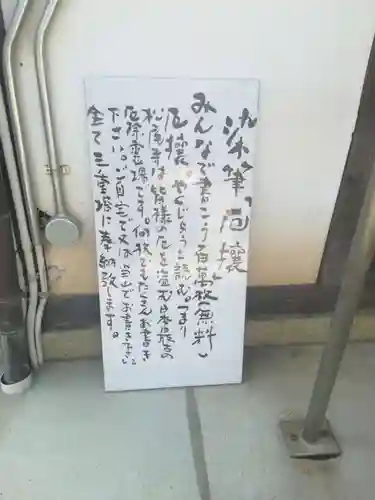 染筆「厄壌」
みんなで書こう百萬枚(無料)
厄壌。やくじょうと読む。つまり
松尾寺は皆様の厄を盗む日本最古の
厄除霊場です。何枚でもたくさんお書き
下さい。ご自宅で又は当山でお書き下さい
全て三重塔に奉納致します。